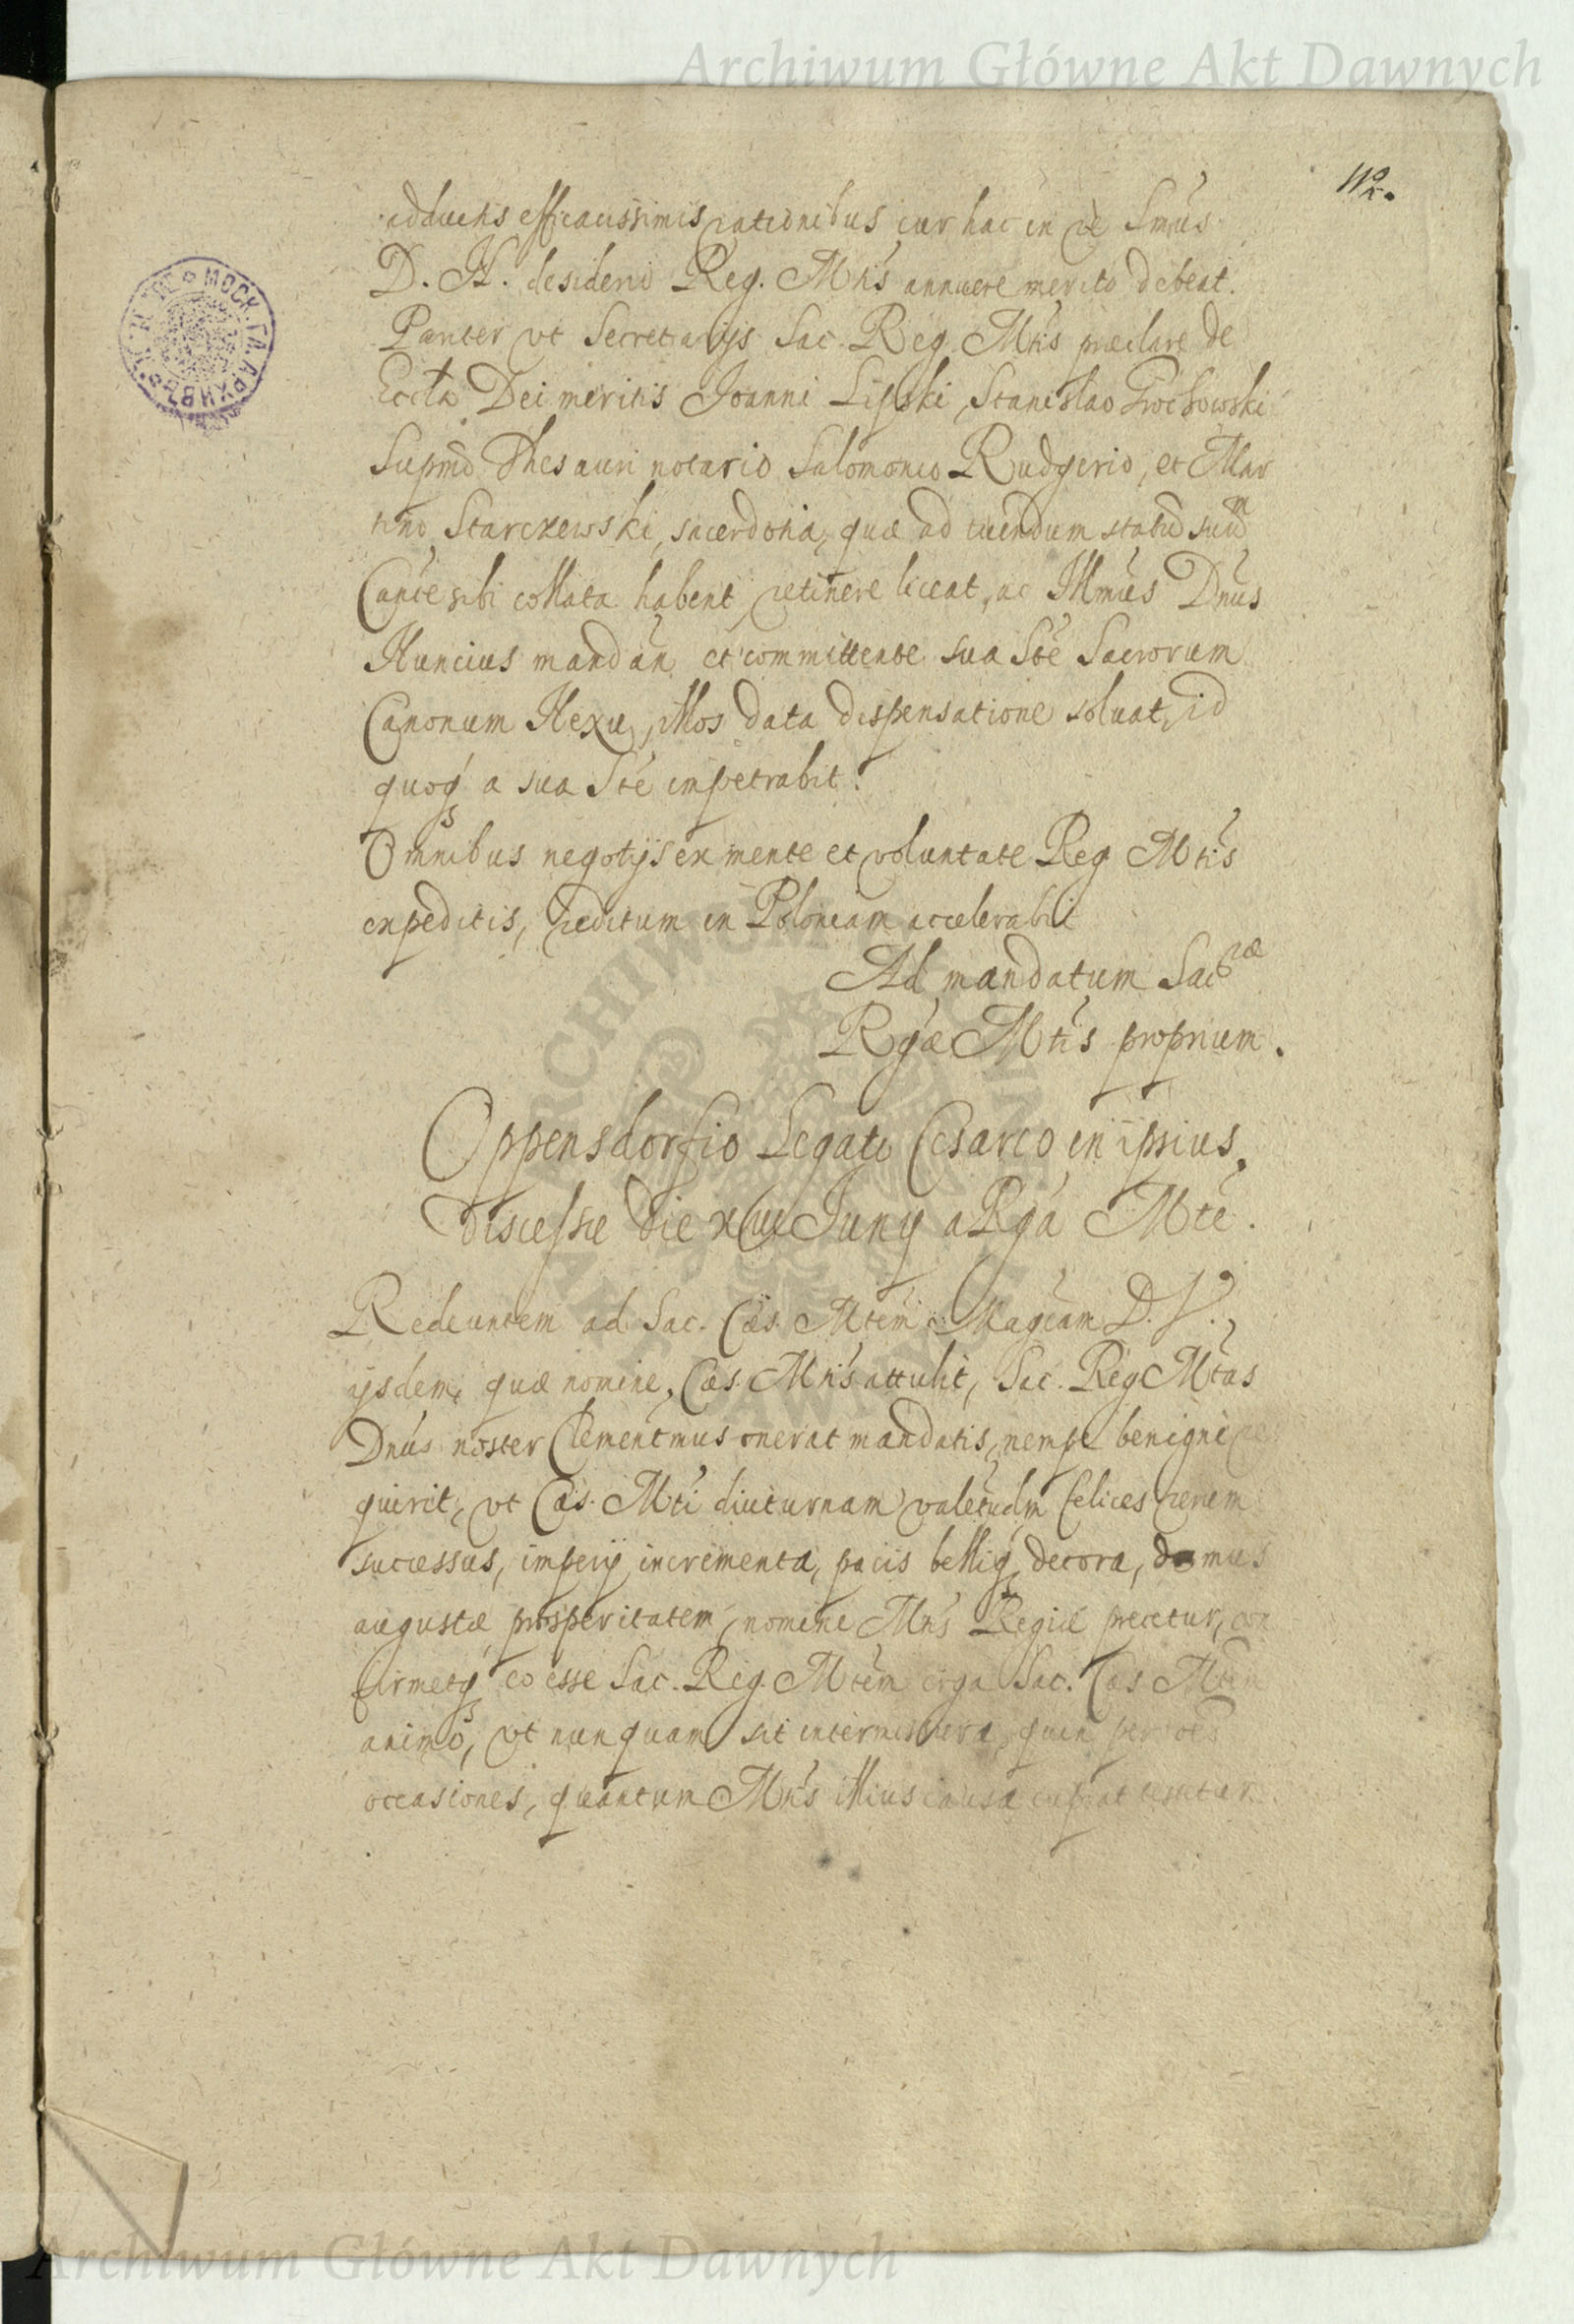 Archiwum Główne Akt Dawnych
adductis efficacissimis rationibus cur hac in re Smus
D. N. desiderio Reg. Mtis annuere merito debeat.
Pariter vt Secretarijs Sac. Reg. Mtis præclare de
Eccla Dei meritis Joanni Lipski, Stanislao Grochowski
Supmo Thesauri notario Salomoneo Rudgerio, et Mar
tino Starczewski, sacerdotia, quæ ad tuendum statum suum
Cance sibi collata habent, retinere liceat, ac Illmus Dnus
Nuncius mandan et committente sua Ste Sacrorum
Canonum Nexu, illos data dispensatione soluat, id
quoq a sua Ste impetrabit.
Omnibus negotijs ex mente et voluntate Reg Mtis
expeditis, reditum in Poloniam accelerabit
Ad mandatum Sacræ
Rgæ Mtis proprium.
Oppensdorfio Legato Cesareo in ipsius
discessu die Juny a Rga Mte.
Redeuntem ad Sac. Cæs. Mtem Magcam D. V.,
ijsdem, quæ nomine Cæs. Mtis attulit, Sac. Reg Mtas
Dnus noster Clementmus onerat mandatis, nempe benigne re
quirit, vt Cæs. Mti diuturnam valetudm felices rerum
successus, imperij incrementa, pacis belliq decora, domus
augustæ prosperitatem, nomine Mtis Regiæ precetur, con
firmetq eo esse Sac. Reg. Mtem erga Sac. Cæs Mtem
animo, vt nunquam sit intermissura, quin per oes
occasiones, quantum Mtis illius causa cupiat testetur.
МОСК. ГЛ. АРХИВЪ
ARCHIWUM
Archiwum Główne Akt Dawnych